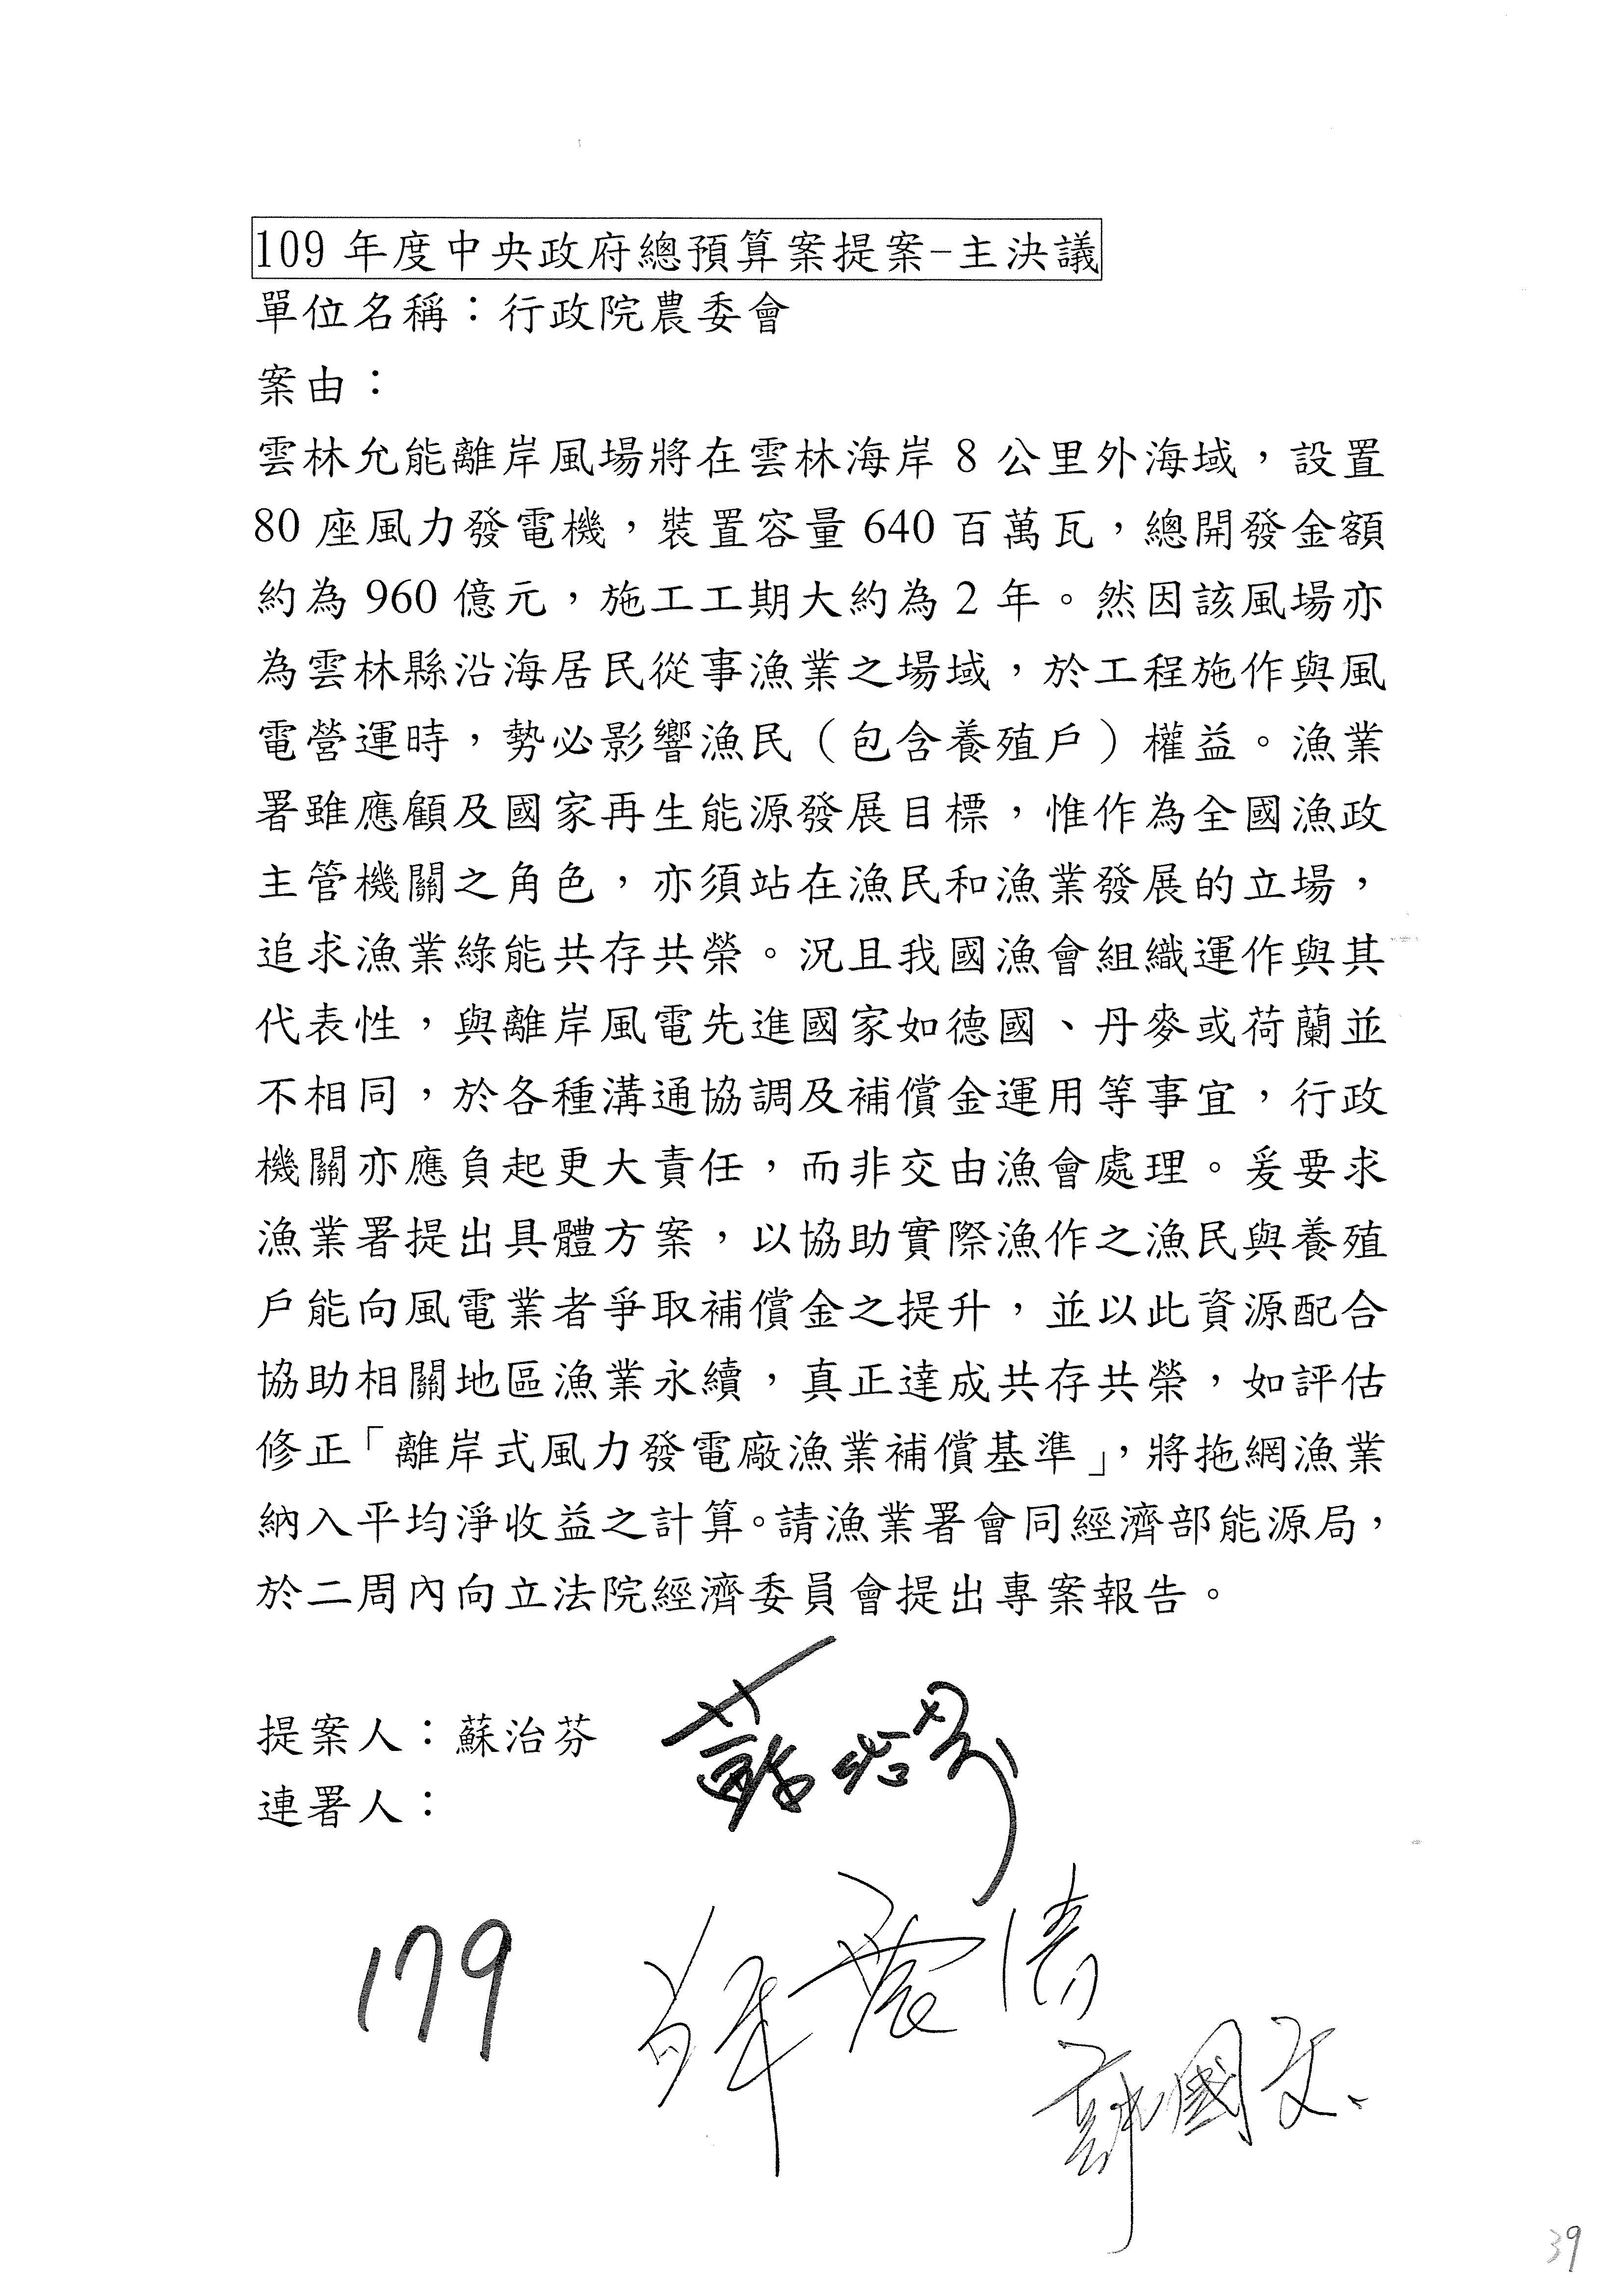 109 年度中央政府總預算案提案-主決議
單位名稱：行政院農委會
案由：
雲林允能離岸風場將在雲林海岸 8 公里外海域，設置
80 座風力發電機，裝置容量 640 百萬瓦，總開發金額
約為 960 億元，施工工期大約為 2 年。然因該風場亦
為雲林縣沿海居民從事漁業之場域，於工程施作與風
電營運時，勢必影響漁民（包含養殖戶）權益。漁業
署雖應顧及國家再生能源發展目標，惟作為全國漁政
主管機關之角色，亦須站在漁民和漁業發展的立場，
追求漁業綠能共存共榮。況且我國漁會組織運作與其
代表性，與離岸風電先進國家如德國、丹麥或荷蘭並
不相同，於各種溝通協調及補償金運用等事宜，行政
機關亦應負起更大責任，而非交由漁會處理。爰要求
漁業署提出具體方案，以協助實際漁作之漁民與養殖
戶能向風電業者爭取補償金之提升，並以此資源配合
協助相關地區漁業永續，真正達成共存共榮，如評估
修正「離岸式風力發電廠漁業補償基準」，將拖網漁業
納入平均淨收益之計算。請漁業署會同經濟部能源局，
於二周內向立法院經濟委員會提出專案報告。
提案人：蘇治芬 蘇治芬
連署人：
179
郭國文
39